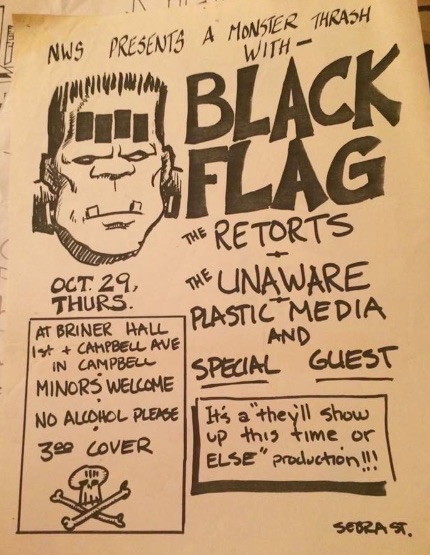 NWS PRESENTS A MONSTER THRASH
WITH -
BLACK
FLAG
THE RETORTS
-
THE UNAWARE
-
PLASTIC MEDIA
AND
SPECIAL GUEST
OCT. 29,
THURS.
AT BRINER HALL
1st + CAMPBELL AVE
IN CAMPBELL
MINORS WELCOME
·
NO ALCOHOL PLEASE
·
3⁰⁰ COVER
It's a "they'll show
up this time or
ELSE" production!!!